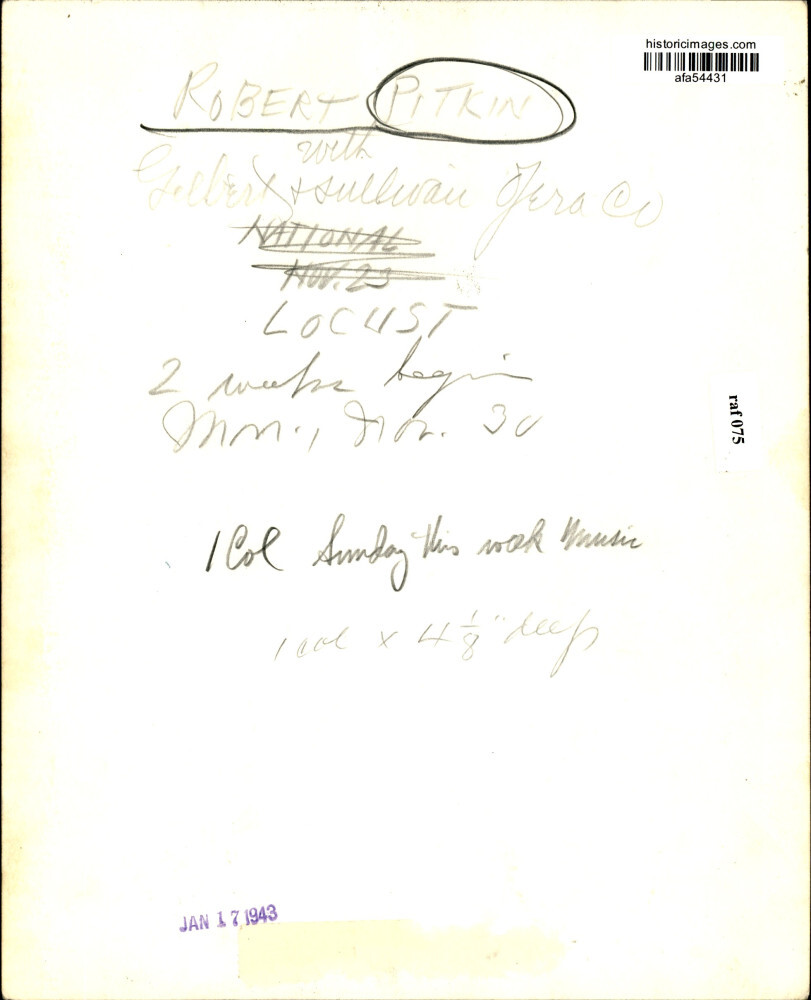 historicimages.com
afa54431
ROBERT PITKIN
with
Gilbert & Sullivan Opera Co
NATIONAL
NOV. 23
LOCUST
2 weeks begin
Mon., Nov. 30
raf 075
1 Col Sunday this week Music
1 col x 4 1/8" deep
JAN 17 1943